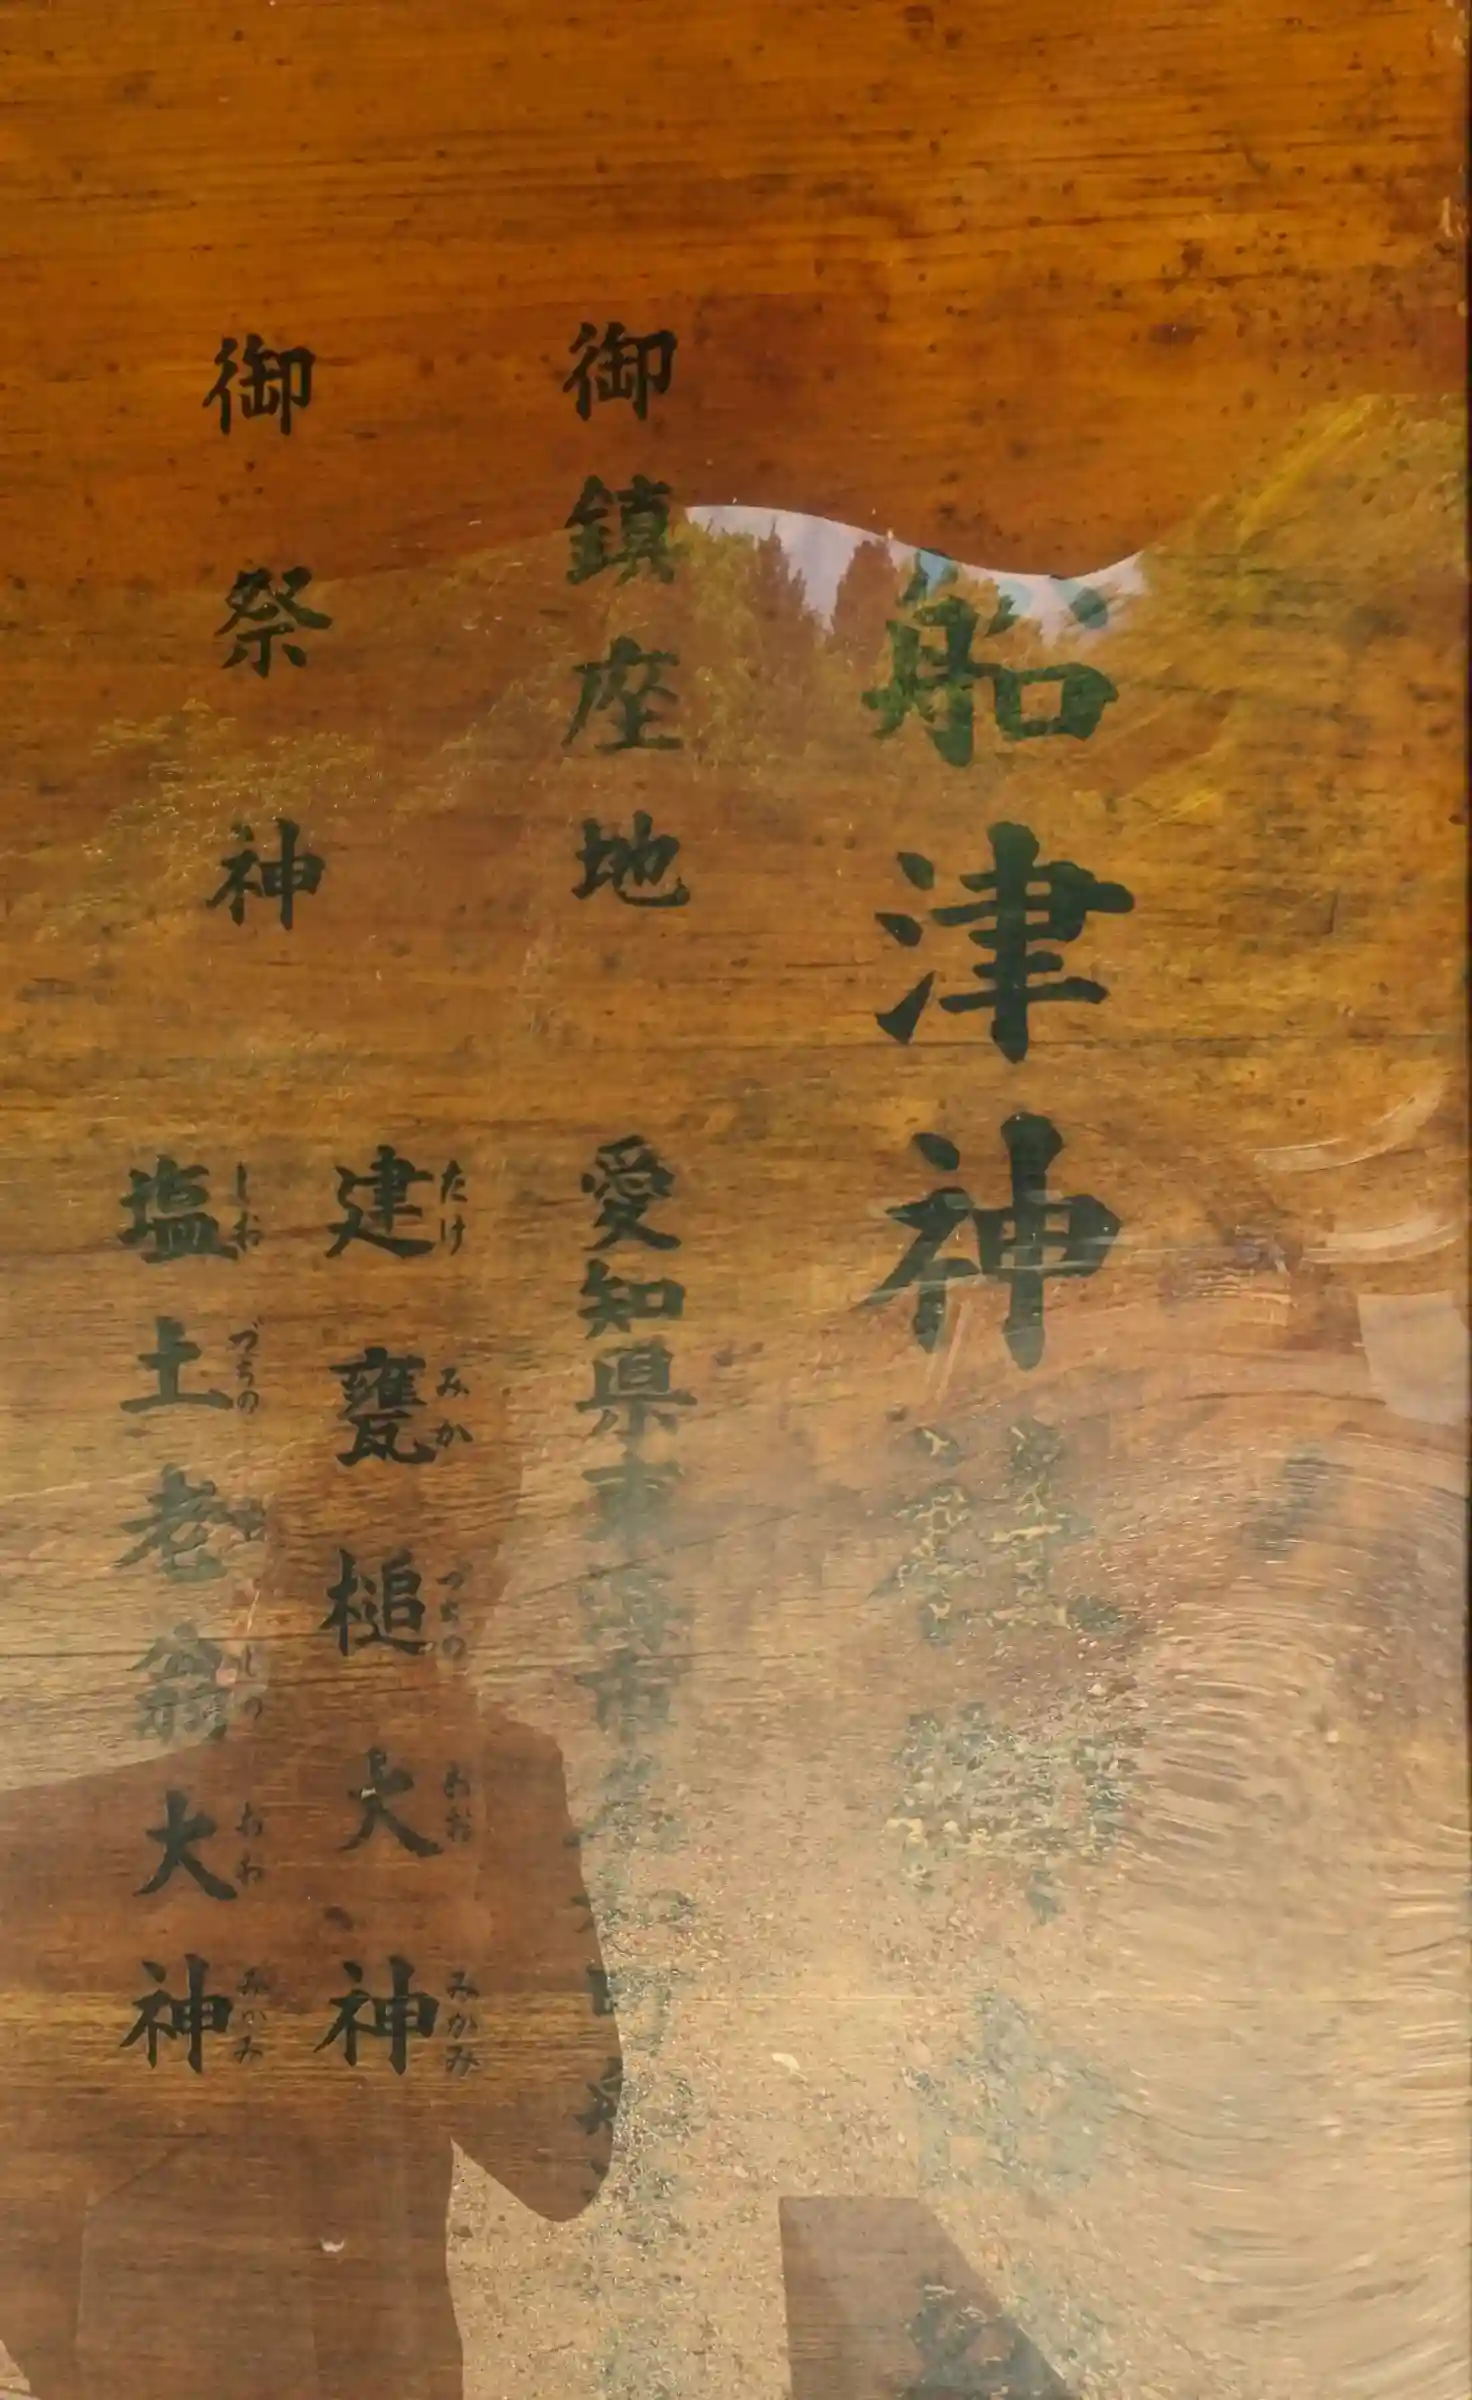 船津神社御
御鎮座地 愛知県東海市名和町船
御祭神
建甕槌大神
たけみかづちのおおみかみ
塩土老翁大神
しおづちのおじのおおみかみ